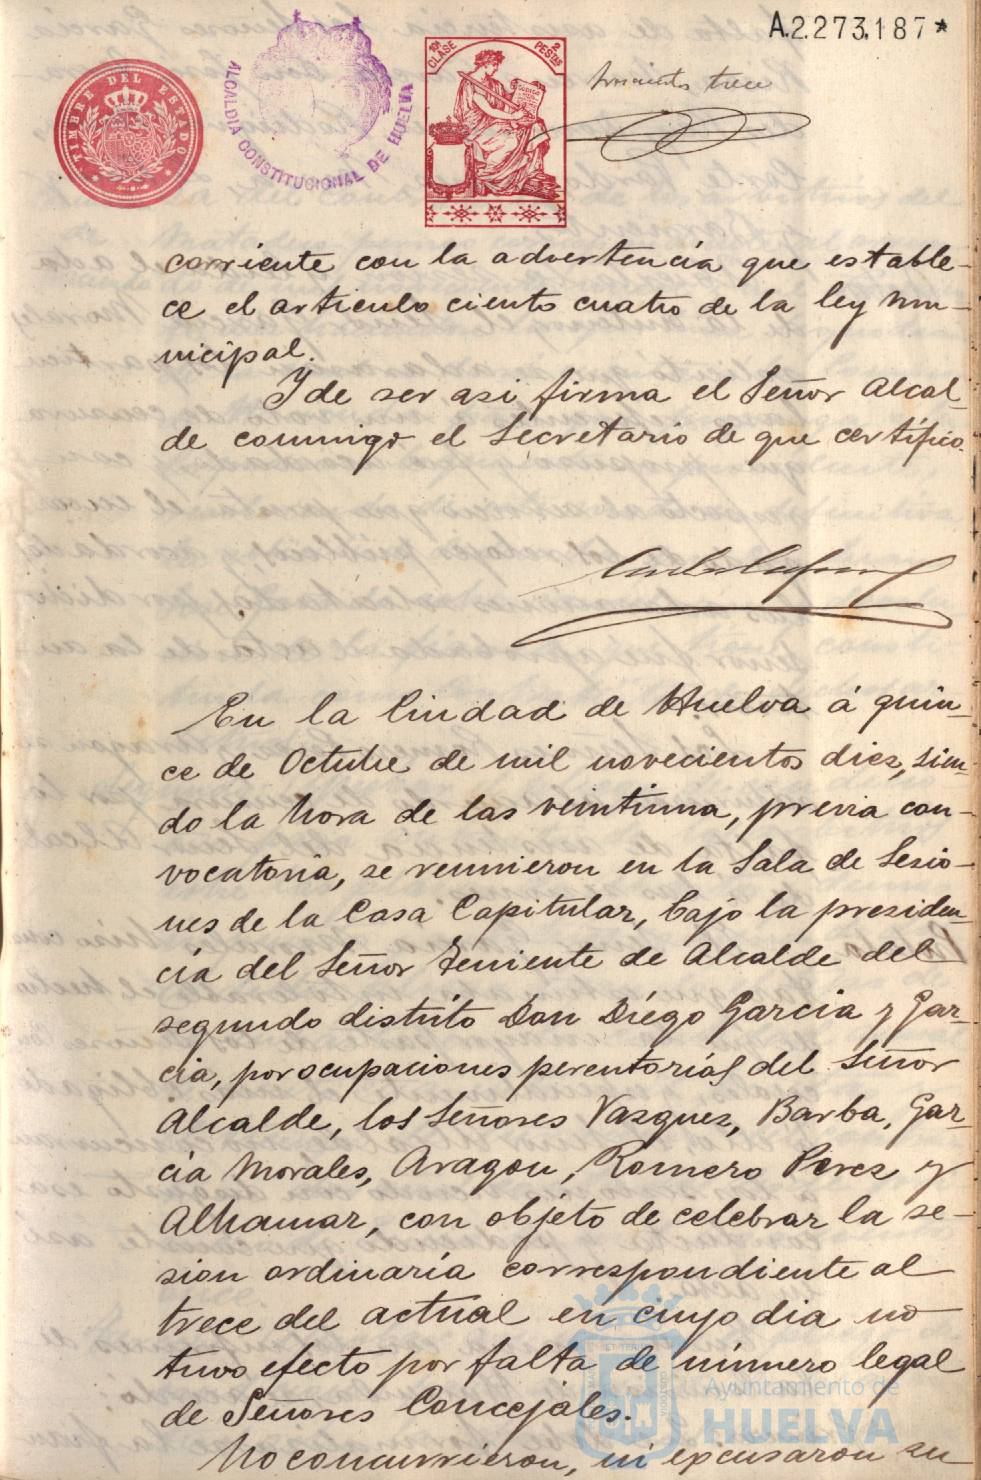 A.2.273.187*
TIMBRE DEL ESTADO
ALCALDIA CONSTITUCIONAL DE HUELVA
10ª CLASE 2 PESTAS
trece
corriente con la advertencia que estable-
ce el articulo ciento cuatro de la ley mu-
nicipal.
Y de ser asi firma el Señor Alcal-
de conmigo el Secretario de que certifico.
En la Ciudad de Huelva á quin-
ce de Octubre de mil novecientos diez, sien-
do la hora de las veintiuna, previa con-
vocatoria, se reunieron en la Sala de Sesio-
nes de la Casa Capitular, bajo la presiden-
cia del Señor Teniente de Alcalde del
segundo distrito Don Diego Garcia y Gar-
cia, por ocupaciones perentorias del Señor
Alcalde, los Señores Vazquez, Barba, Gar-
cia Morales, Aragon, Romero Perez y
Alhamar, con objeto de celebrar la se-
sion ordinaria correspondiente al
trece del actual en cuyo dia no
tuvo efecto por falta de número legal
de Señores Concejales.
No concurrieron, ni excusaron su
Ayuntamiento de
HUELVA